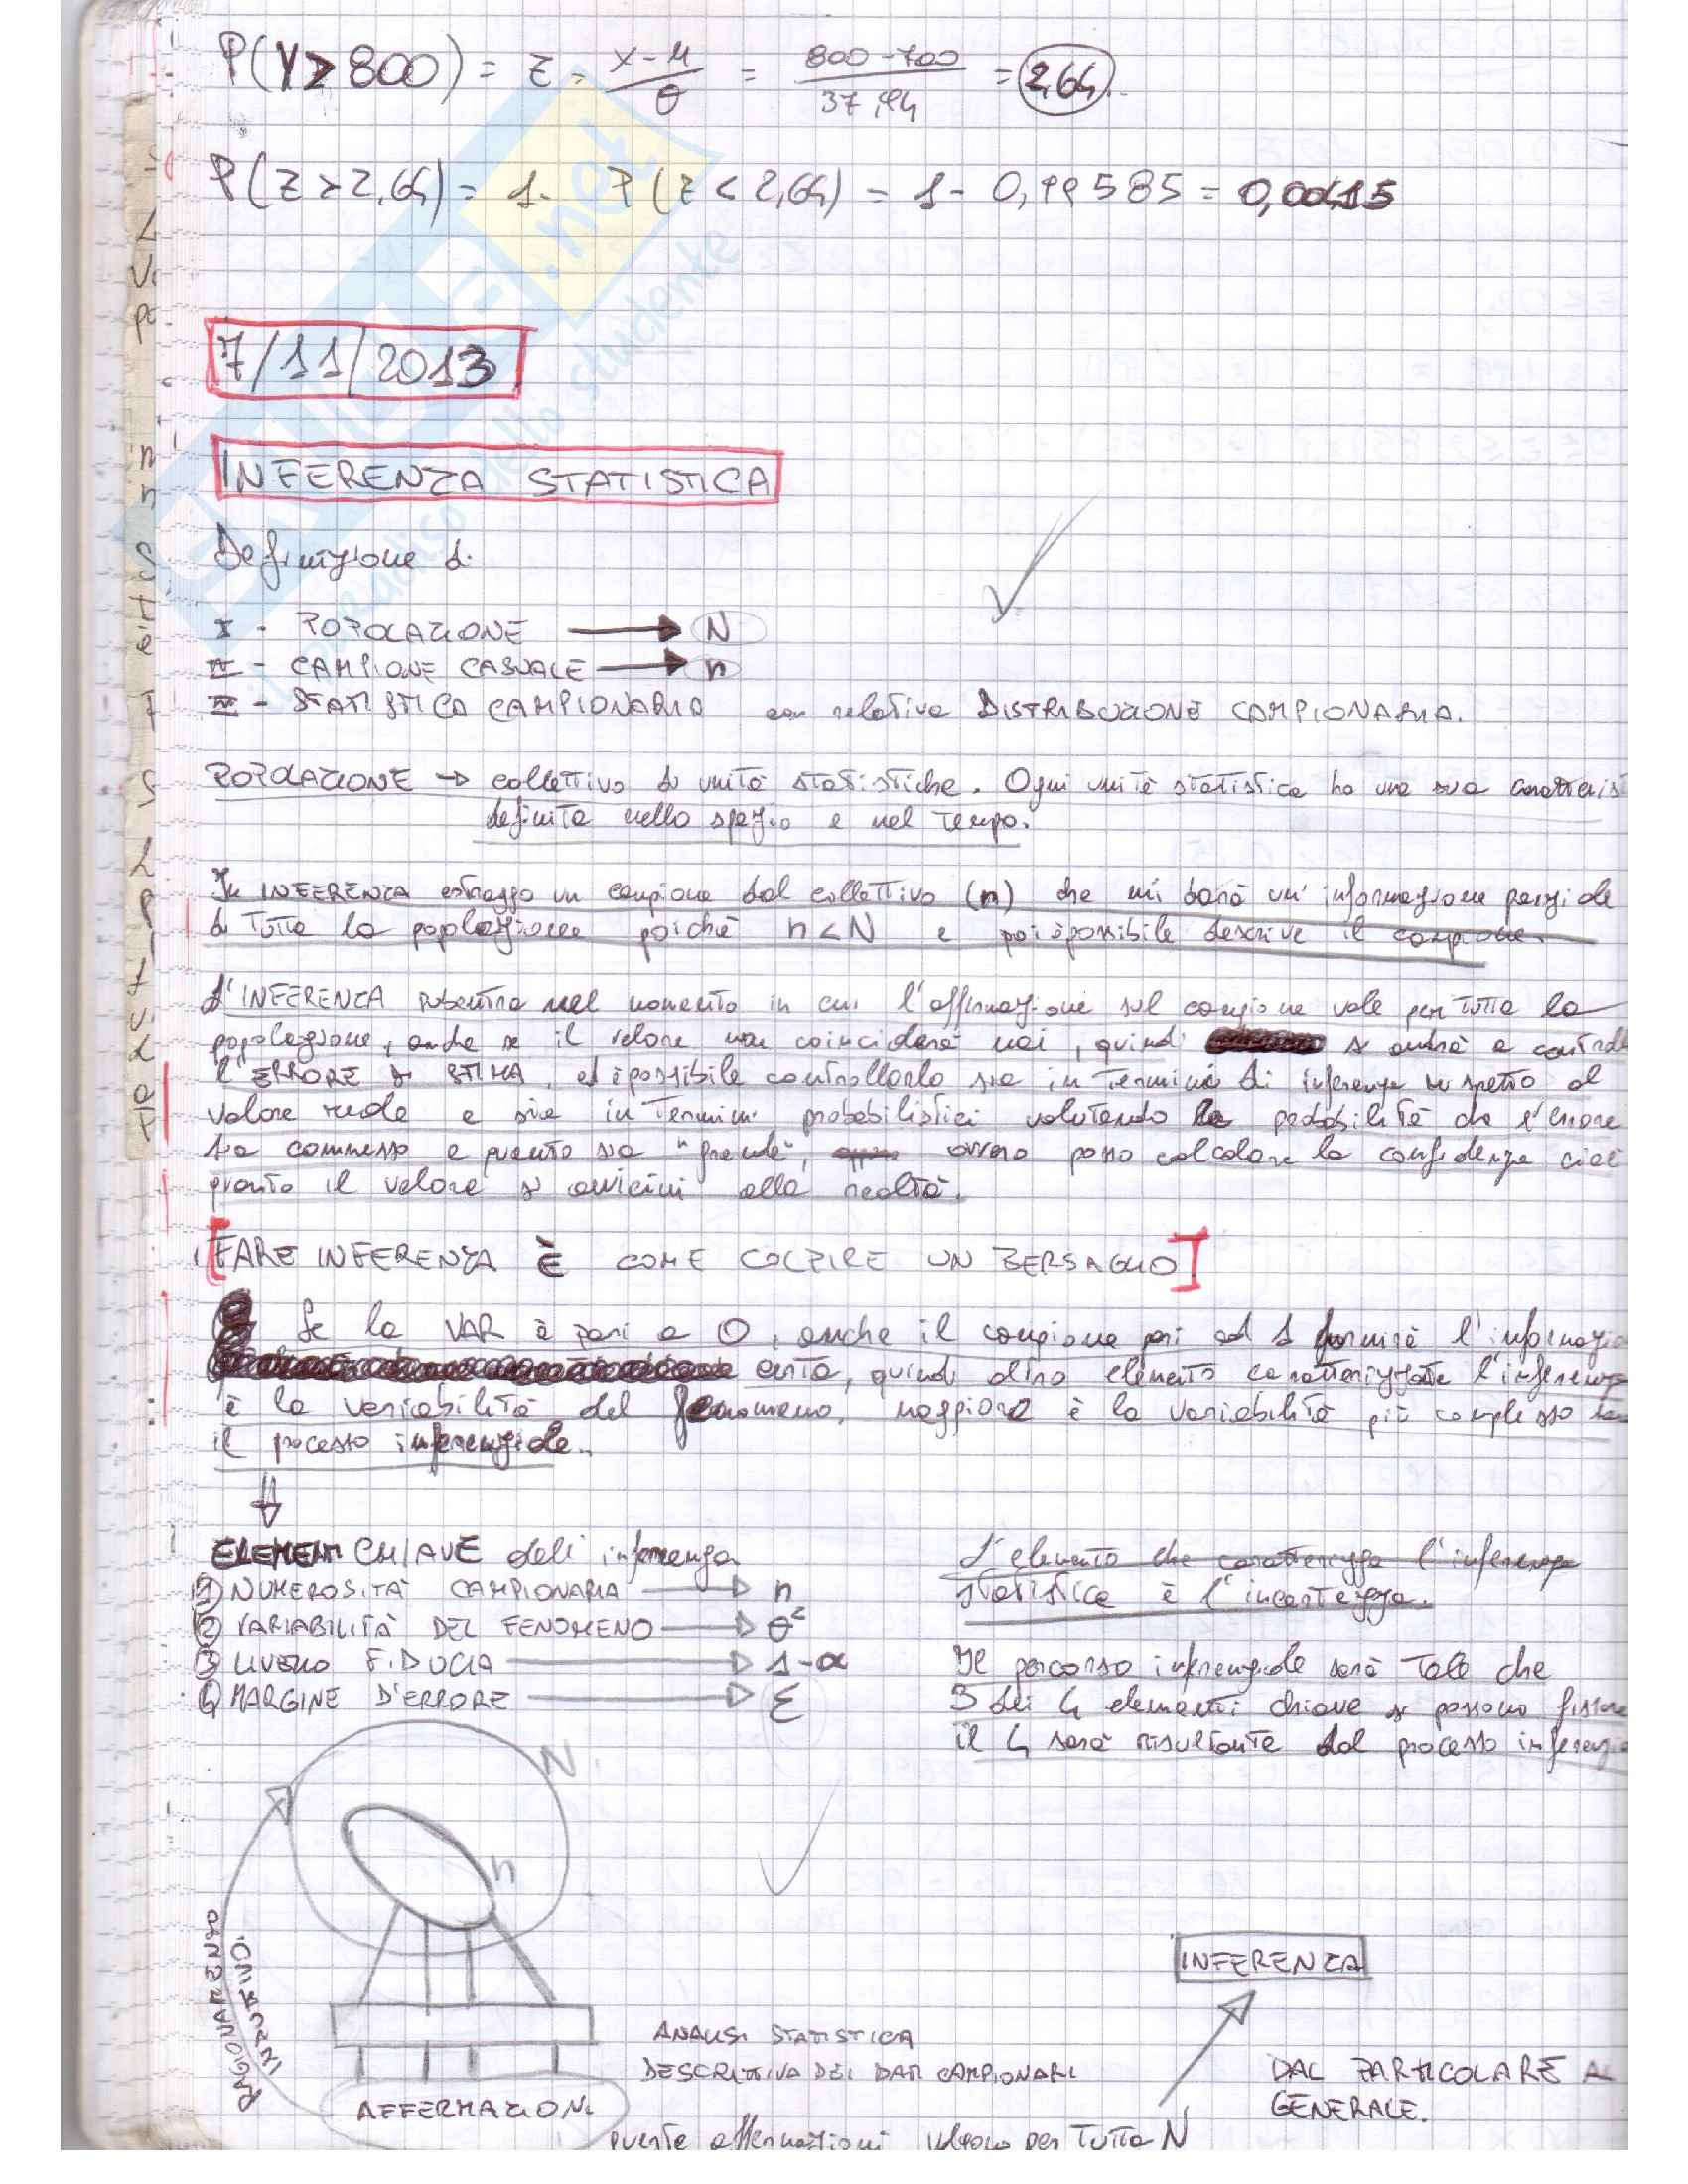 P(Y ≥ 800) = Z = X-μ/σ = 800-700/37,94 = 2,64
P(Z > 2,64) = 1- P(Z < 2,64) = 1- 0,99585 = 0,00415
7/11/2013
INFERENZA STATISTICA
Definizione di
I - POPOLAZIONE → N
II - CAMPIONE CASUALE → n
III - STATISTICA CAMPIONARIA con relativa DISTRIBUZIONE CAMPIONARIA.
POPOLAZIONE → collettivo di unità statistiche. Ogni unità statistica ha una sua caratteris
definita nello spazio e nel tempo.
In INFERENZA estraggo un campione dal collettivo (n) che mi darà un' informazione parziale
di tutta la popolazione poiché n < N e poi è possibile descrive il campione.
L'INFERENZA subentra nel momento in cui l'affermazione sul campione vale per tutta la
popolazione, anche se il valore non coinciderà mai, quindi si andrà a controll
l'ERRORE di STIMA, ed è possibile controllarlo sia in termini di inferenza rispetto al
valore reale e sia in termini probabilistici valutando la probabilità che l'errore
sia commesso e quanto sia "grande", ovvero posso calcolare la confidenza cioè
quanto il valore si avvicini alla realtà.
[FARE INFERENZA È COME COLPIRE UN BERSAGLIO]
Se la VAR è pari a 0, anche il campione pari ad 1 fornirà l'informazio
certa, quindi altro elemento caratterizzante l'inferenza
è la variabilità del fenomeno, maggiore è la variabilità più complesso
il processo inferenziale.
ELEMENTI CHIAVE dell'inferenza
1) NUMEROSITÀ CAMPIONARIA → n
2) VARIABILITÀ DEL FENOMENO → σ²
3) LIVELLO FIDUCIA → 1-α
4) MARGINE D'ERRORE → ε
L'elemento che caratterizza l'inferenza
statistica è l'incertezza.
Il percorso inferenziale sarà tale che
3 dei 4 elementi chiave si possono fissare
il 4 sarà risultante dal processo inferenzia
N
n
RAGIONAMENTO
INDUTTIVO
AFFERMAZIONI
ANALISI STATISTICA
DESCRITTIVA DEI DATI CAMPIONARI
queste affermazioni valgono per tutta N
INFERENZA
DAL PARTICOLARE AL
GENERALE.